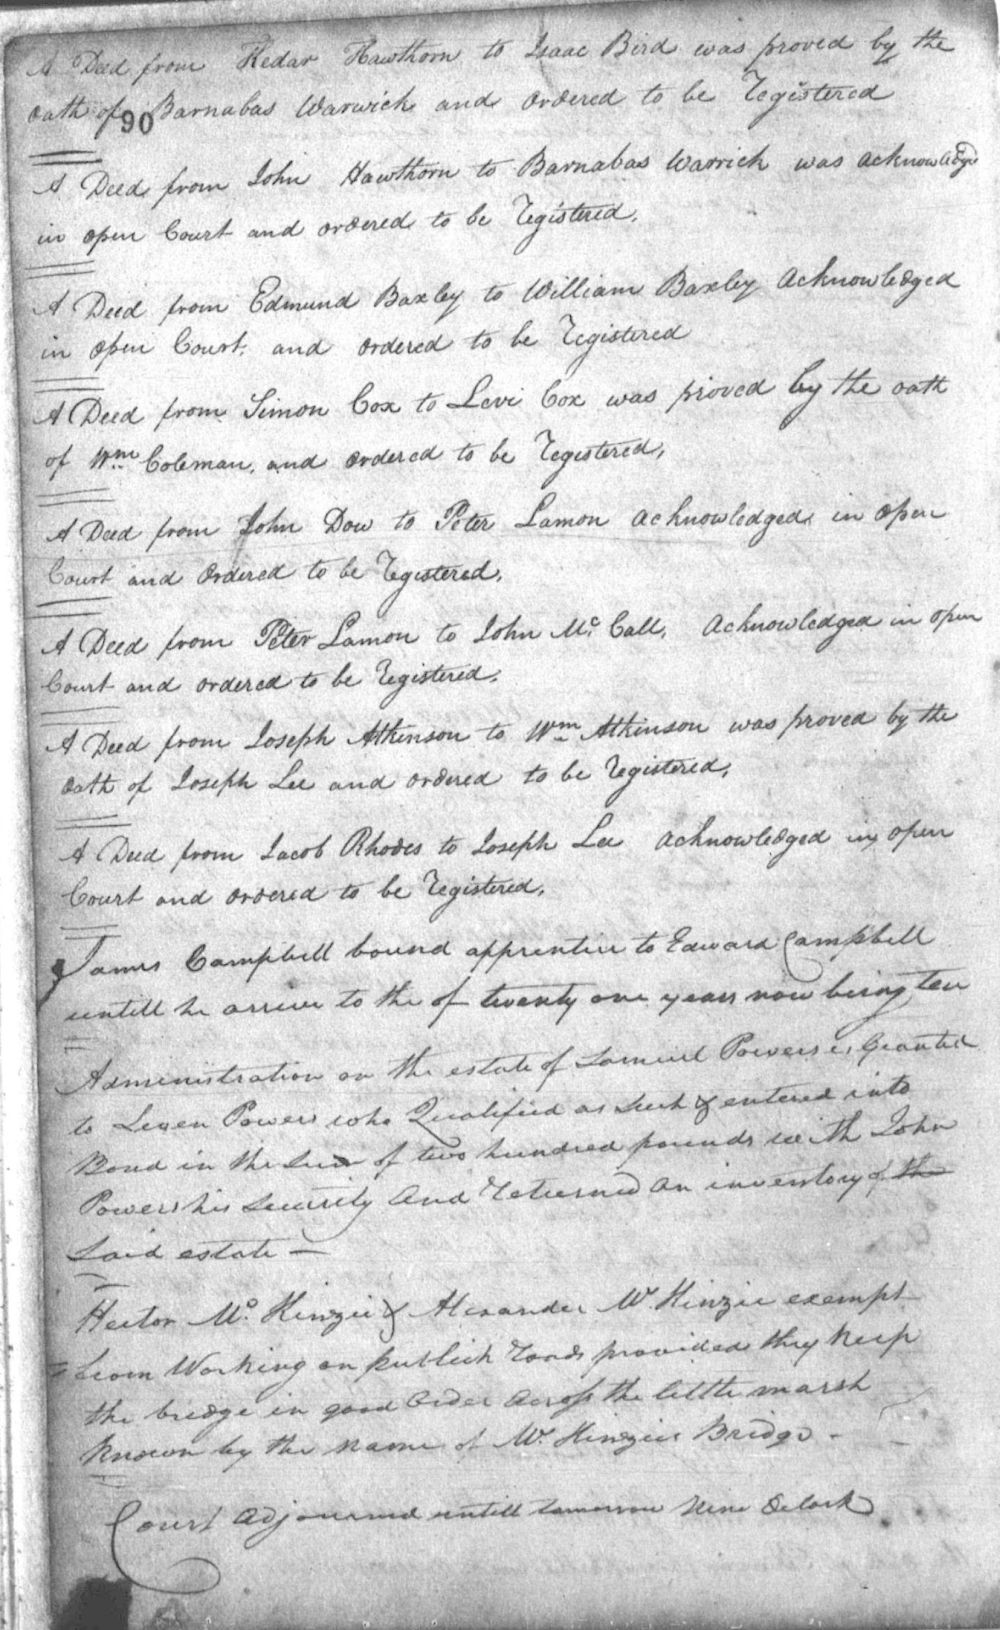 A Deed from Kedar Hawthorn to Isaac Bird was proved by the
oath of Barnabas Warwick and ordered to be registered
90
A Deed from John Hawthorn to Barnabas Warrick was acknowledgd
in open Court and ordered to be registered.
A Deed from Edmund Baxley to William Baxley Acknowledged
in open Court, and ordered to be registered
A Deed from Simon Cox to Levi Cox was proved by the oath
of Wm Coleman, and ordered to be registered,
A Deed from John Dow to Peter Lamon acknowledged in open
Court and ordered to be registered,
A Deed from Peter Lamon to John Mc Call, Acknowledged in open
Court and ordered to be registered.
A Deed from Joseph Atkinson to Wm Atkinson was proved by the
oath of Joseph Lee and ordered to be registered,
A Deed from Jacob Rhodes to Joseph Lee acknowledged in open
Court and ordered to be registered,
James Campbell bound apprentice to Edward Campbell
untill he arrive to the of twenty one years now being ten
Administration on the estate of Samuel Powers is Granted
to Powers who Qualified as such & entered into
Bond in the sum of two hundred pounds with John
Powers his security and returned an inventory of the
said estate —
Hector Mc Kinzie & Alexander Mc Kinzie exempt
from Working on publick roads provided they keep
the bridge in good order across the little marsh
known by the name of Mc Kinzies Bridge -
Court adjourned untill tomorrow nine Oclock